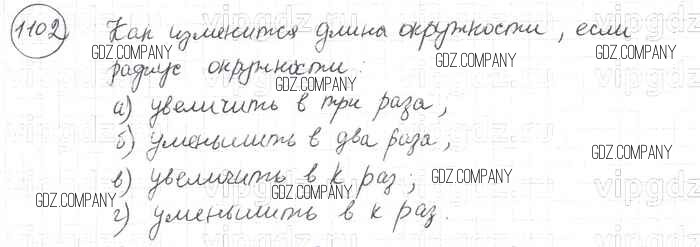 1102 Как изменится длина окружности, если
радиус окружности:
а) увеличить в три раза,
б) уменьшить в два раза,
в) увеличить в к раз;
г) уменьшить в к раз.
GDZ.COMPANY
GDZ.COMPANY
GDZ.COMPANY
GDZ.COMPANY
GDZ.COMPANY
GDZ.COMPANY
GDZ.COMPANY
GDZ.COMPANY
GDZ.COMPANY